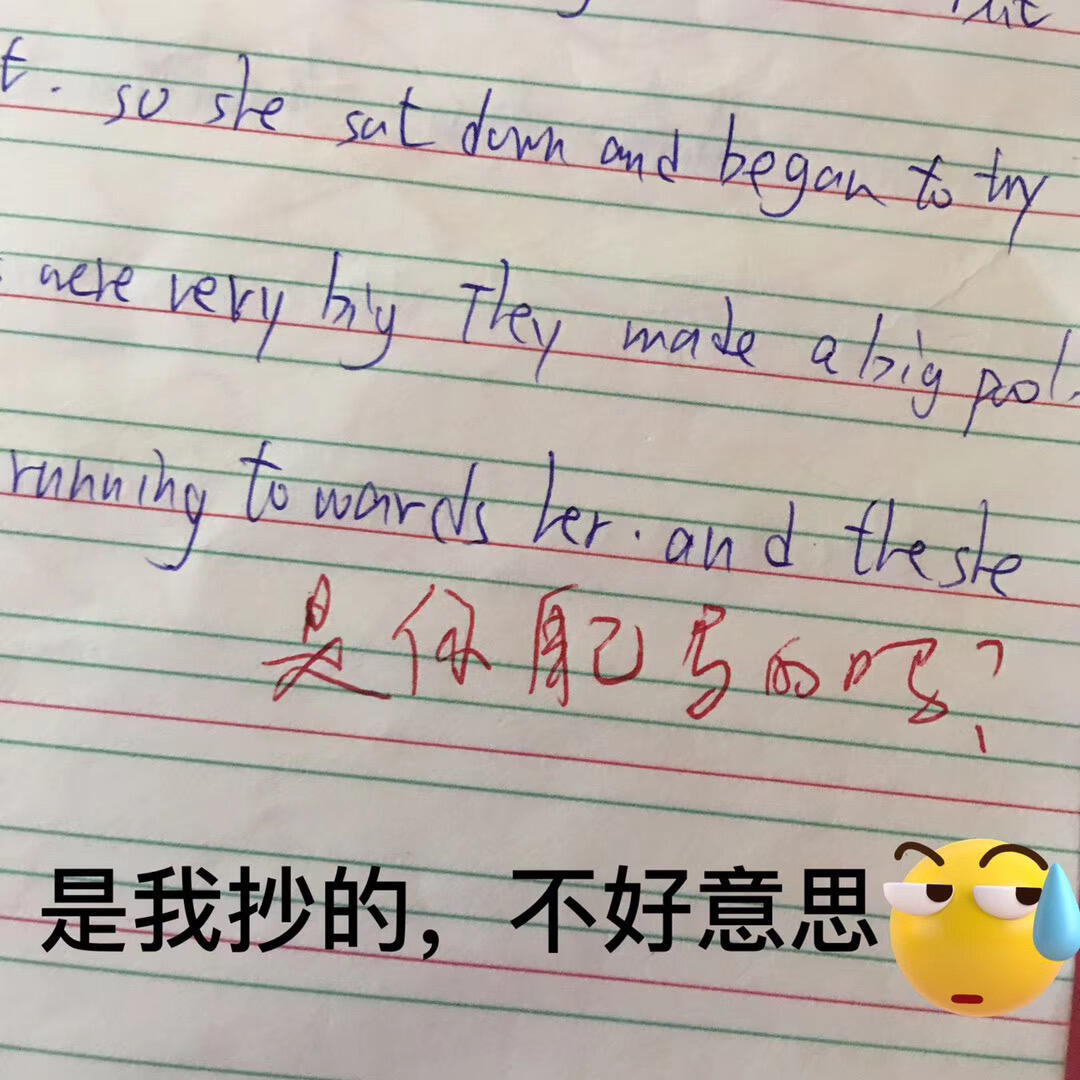 t. so she sat down and began to try
were very big They made a big pool.
running towards her. and the she
是你自己写的吗?
是我抄的，不好意思